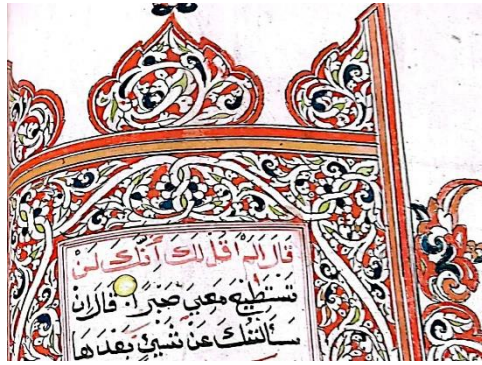 قَالَ اَلَمْ اَقُلْ لَكَ اَنَّكَ لَنْ
تَسْتَطِيعَ مَعِيَ صَبْرًا قَالَ اِنْ
سَاَلْتُكَ عَنْ شَيْئٍ بَعْدَهَا